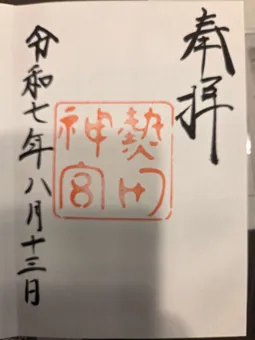 奉拝
熱田
神宮
令和七年八月十三日